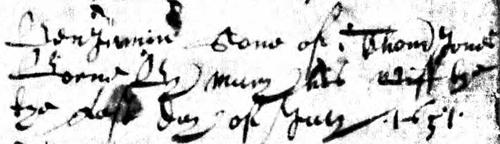 Benjamin Sone of Thom Jones
Borne by mary his wiff the
the last day of July 1651